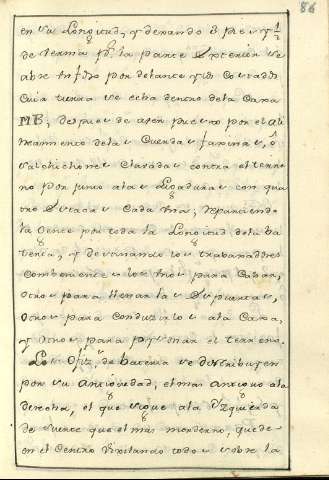 86
en su Longitud, y dexando 3 pies y 1/2
de berma p.r la parte Exterior se
abre un foso por delante
cuia tierra se echa dentro dela Caxa
MB, despues de aver puesto por el ali
neamiento dela Cuerda faxinas, ô
Salchichones Clavadas contra el terre
no por junto alas Ligaduras con qua
tro Estacas Cada Una; repartiendo
la Gente por toda la Longitud dela ba
teria, y destinando los trabaxadores
combenientes los unos para Cabar,
otros para llenar las Espuertas,
otros para Conduzirlas ala Caxa,
y otros para pisonar el terreno.
Los Ofiz.s de bateria se distribuyen
por su Antiguedad; el mas Antiguo ala
derecha, el que sigue ala Yzquierda
de suerte que el mas moderno, quede
en el Centro Visitando todos sobre la